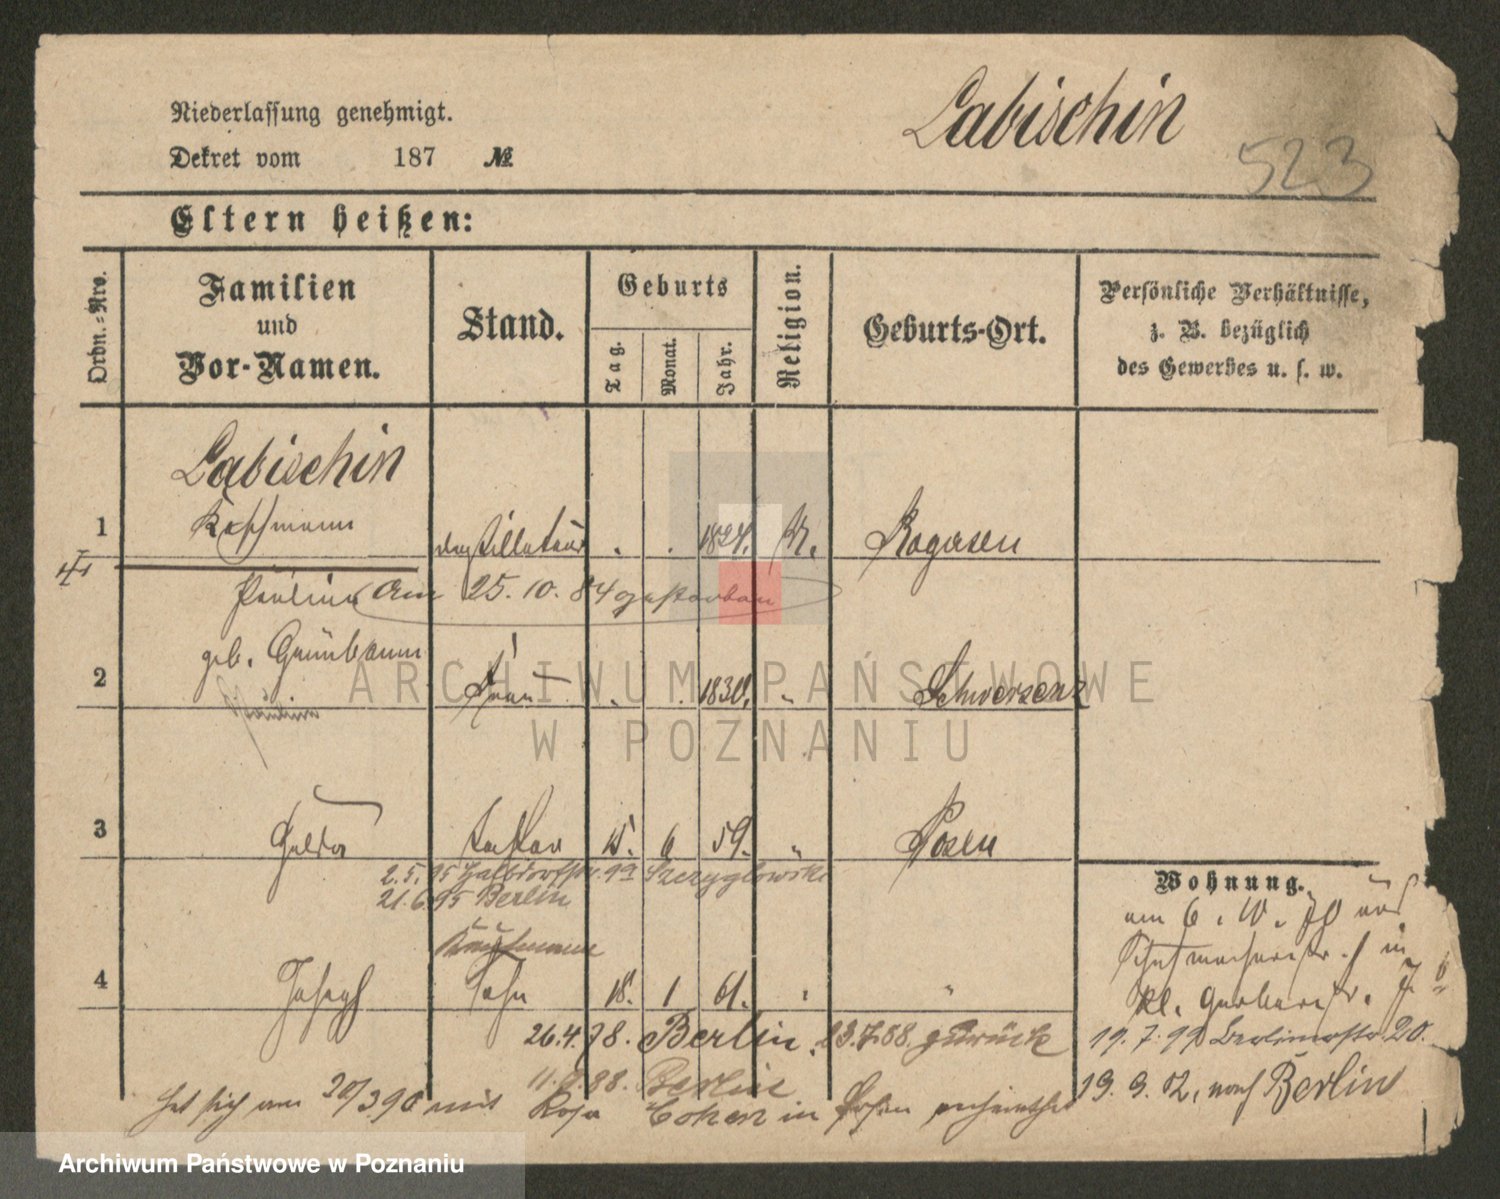 Niederlassung genehmigt.
Labischin
Dekret vom 187 №
523
Eltern heißen:
Ordn.-Nro.
Familien
und
Vor-Namen.
Stand.
Geburts
Tag.
Monat.
Jahr.
Religion.
Geburts-Ort.
Persönliche Verhältnisse,
z. B. bezüglich
des Gewerbes u. s. w.
Labischin
1 Kaufmann 1824. Rogasen
Pauline Am 25. 10. 84 gestorben
geb. Grünbaum
2 Frau . . 1830. " Schwersenz
Pauline
3 Tochter 15. 6 59. " Posen
2.5.95 Halbdorfstr. 9a Szczyglowski
21.6.95 Berlin
Kaufmann
4 Joseph Sohn 18. 1 61. "
26.4.78. Berlin. 23.7.88. zurück
11.9.88. Berlin
hat sich am 20/3 90 mit Rosa Cohen in Posen verheirathet
Wohnung.
am 6. 10. 70
Schuhmacherstr. in
kl. Gerberstr.
19. 7. 99 Berlinerstr. 20.
19. 9. 02. nach Berlin
ARCHIWUM PAŃSTWOWE
W POZNANIU
Archiwum Państwowe w Poznaniu